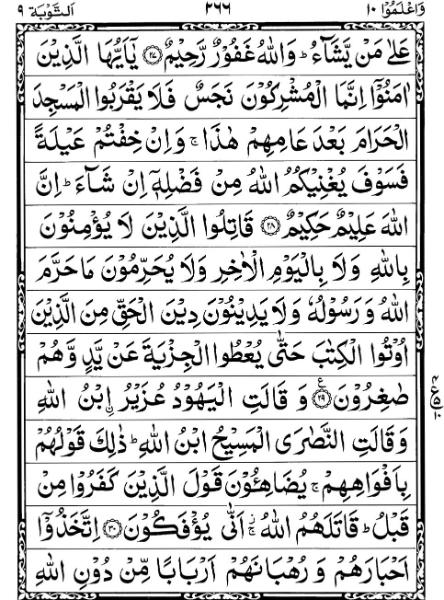 وَاعْلَمُوْٓا ١٠ ٢٦٦ اَلتَّوْبَة ٩
عَلٰى مَنْ يَّشَآءُ ؕ وَاللّٰهُ غَفُوْرٌ رَّحِيْمٌ ﴿٢٧﴾ يٰٓاَيُّهَا الَّذِيْنَ
اٰمَنُوْٓا اِنَّمَا الْمُشْرِكُوْنَ نَجَسٌ فَلَا يَقْرَبُوا الْمَسْجِدَ
الْحَرَامَ بَعْدَ عَامِهِمْ هٰذَا ۚ وَاِنْ خِفْتُمْ عَيْلَةً
فَسَوْفَ يُغْنِيْكُمُ اللّٰهُ مِنْ فَضْلِهٖٓ اِنْ شَآءَ ؕ اِنَّ
اللّٰهَ عَلِيْمٌ حَكِيْمٌ ﴿٢٨﴾ قَاتِلُوا الَّذِيْنَ لَا يُؤْمِنُوْنَ
بِاللّٰهِ وَلَا بِالْيَوْمِ الْاٰخِرِ وَلَا يُحَرِّمُوْنَ مَا حَرَّمَ
اللّٰهُ وَرَسُوْلُهٗ وَلَا يَدِيْنُوْنَ دِيْنَ الْحَقِّ مِنَ الَّذِيْنَ
اُوْتُوا الْكِتٰبَ حَتّٰى يُعْطُوا الْجِزْيَةَ عَنْ يَّدٍ وَّهُمْ
صٰغِرُوْنَ ﴿٢٩﴾ وَقَالَتِ الْيَهُوْدُ عُزَيْرُ ۨابْنُ اللّٰهِ
وَقَالَتِ النَّصٰرَى الْمَسِيْحُ ابْنُ اللّٰهِ ؕ ذٰلِكَ قَوْلُهُمْ
بِاَفْوَاهِهِمْ ۚ يُضَاهِئُوْنَ قَوْلَ الَّذِيْنَ كَفَرُوْا مِنْ
قَبْلُ ؕ قَاتَلَهُمُ اللّٰهُ ۚ اَنّٰى يُؤْفَكُوْنَ ﴿٣٠﴾ اِتَّخَذُوْٓا
اَحْبَارَهُمْ وَرُهْبَانَهُمْ اَرْبَابًا مِّنْ دُوْنِ اللّٰهِ